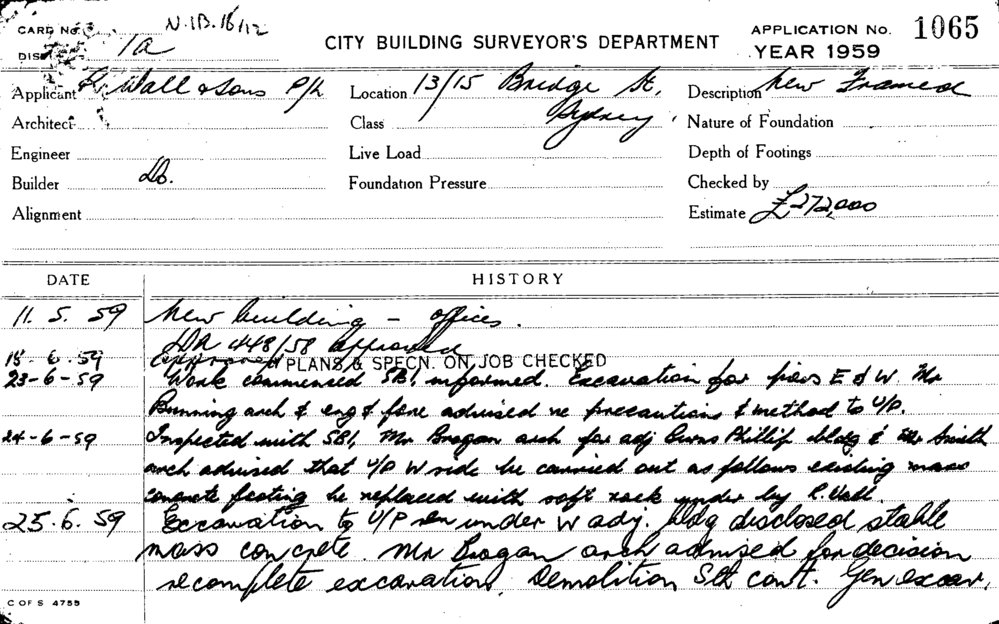 CARD No. 3. N.IB.18/12
DIST 1a
CITY BUILDING SURVEYOR'S DEPARTMENT
APPLICATION No. 1065
YEAR 1959
Applicant Wall & Sons P/L Location 13/15 Bridge St, Description New Framed
Architect Class Sydney Nature of Foundation
Engineer Live Load Depth of Footings
Builder Do. Foundation Pressure Checked by
Alignment Estimate £272,000
DATE HISTORY
11. 5. 59 New building – offices.
DA 448/58 approved
18. 6. 59 PLANS & SPECN. ON JOB CHECKED
23-6-59 Work commenced SBI informed. Excavation for piers E & W. Mr
Bunning arch & eng & fore advised re precautions & method to U/P.
24-6-59 Inspected with SBI, Mr Brogan arch for adj Burns Phillip bldg & Mr Smith
arch advised that U/P W side be carried out as follows existing mass
concrete footing be replaced with soft rock under by R. Wall.
25.6.59 Excavation to U/P under W adj. bldg disclosed stable
mass concrete. Mr Brogan arch advised for decision
re complete excavation. Demolition Stt cont. Gen excav,
C OF S 4759